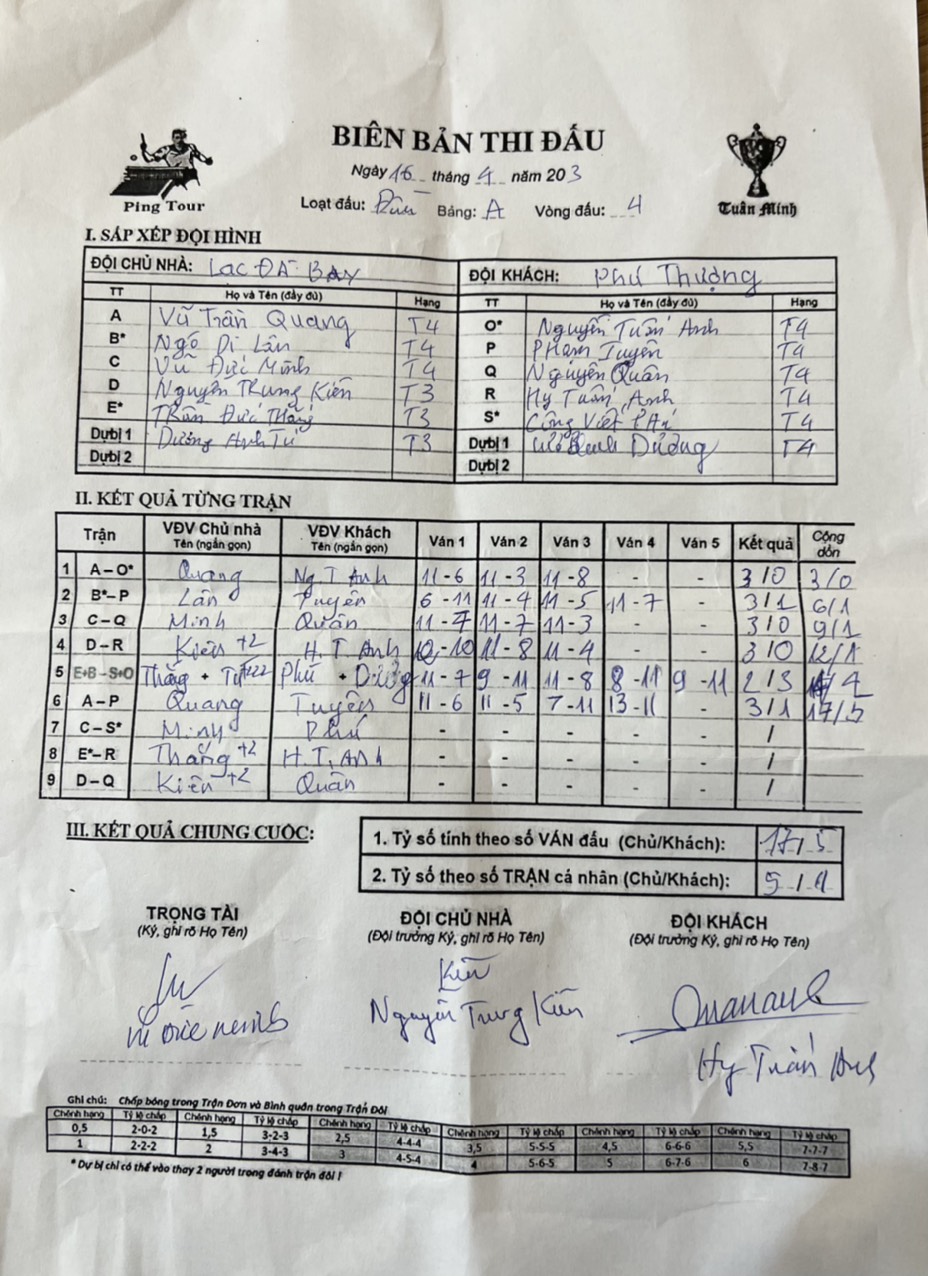 BIÊN BẢN THI ĐẤU
Ping Tour
Tuân Minh
Ngày 16 tháng 4 năm 203
Loạt đấu: Bảng: A Vòng đấu: 4
I. SẮP XẾP ĐỘI HÌNH
ĐỘI CHỦ NHÀ: LẠC ĐÀ BAY ĐỘI KHÁCH: Phú Thượng
TT Họ và Tên (đầy đủ) Hạng TT Họ và Tên (đầy đủ) Hạng
A Vũ Trần Quang T4 O* Nguyễn Tuấn Anh T4
B* Ngô Di Lân T4 P Phạm Tuyên T4
C Vũ Đức Minh T4 Q Nguyễn Quân T4
D Nguyễn Trung Kiên T3 R Hy Tuấn Anh T4
E* Trần Đức Thắng T3 S* Công Việt T4
Dự bị 1 Dương Anh Tú T3 Dự bị 1 Dương T4
Dự bị 2 Dự bị 2
II. KẾT QUẢ TỪNG TRẬN
Trận VĐV Chủ nhà Tên (ngắn gọn) VĐV Khách Tên (ngắn gọn) Ván 1 Ván 2 Ván 3 Ván 4 Ván 5 Kết quả Cộng dồn
1 A – O* Quang Ng T Anh 11 - 6 11 - 3 11 - 8 - - 3 / 0 3 / 0
2 B* – P Lân Tuyên 6 - 11 11 - 4 11 - 5 11 - 7 - 3 / 1 6 / 1
3 C – Q Minh Quân 11 - 7 11 - 7 11 - 3 - - 3 / 0 9 / 1
4 D – R Kiên +2 H. T. Anh 12 - 10 11 - 8 11 - 4 - - 3 / 0 12 / 1
5 E+B – S+O Thắng + Tú Phú + Dương 11 - 7 9 - 11 11 - 8 8 - 11 9 - 11 2 / 3 / 4
6 A – P Quang Tuyên 11 - 6 11 - 5 7 - 11 13 - 11 - 3 / 1 17 / 5
7 C – S* Minh Phú - - - - - /
8 E* – R Thắng +2 H. T. Anh - - - - - /
9 D – Q Kiên +2 Quân - - - - - /
III. KẾT QUẢ CHUNG CUỘC:
1. Tỷ số tính theo số VÁN đấu (Chủ/Khách): 17 / 5
2. Tỷ số theo số TRẬN cá nhân (Chủ/Khách): 5 / 1
TRỌNG TÀI ĐỘI CHỦ NHÀ ĐỘI KHÁCH
(Ký, ghi rõ Họ Tên) (Đội trưởng Ký, ghi rõ Họ Tên) (Đội trưởng Ký, ghi rõ Họ Tên)
Kiên
Nguyễn Trung Kiên
Hy Tuấn Anh
Ghi chú: Chấp bóng trong Trận Đơn và Bình quân trong Trận Đôi
Chênh hạng Tỷ lệ chấp Chênh hạng Tỷ lệ chấp Chênh hạng Tỷ lệ chấp Chênh hạng Tỷ lệ chấp Chênh hạng Tỷ lệ chấp Chênh hạng Tỷ lệ chấp
0,5 2-0-2 1,5 3-2-3 2,5 4-4-4 3,5 5-5-5 4,5 6-6-6 5,5 7-7-7
1 2-2-2 2 3-4-3 3 4-5-4 4 5-6-5 5 6-7-6 6 7-8-7
* Dự bị chỉ có thể vào thay 2 người trong đánh trận đôi !